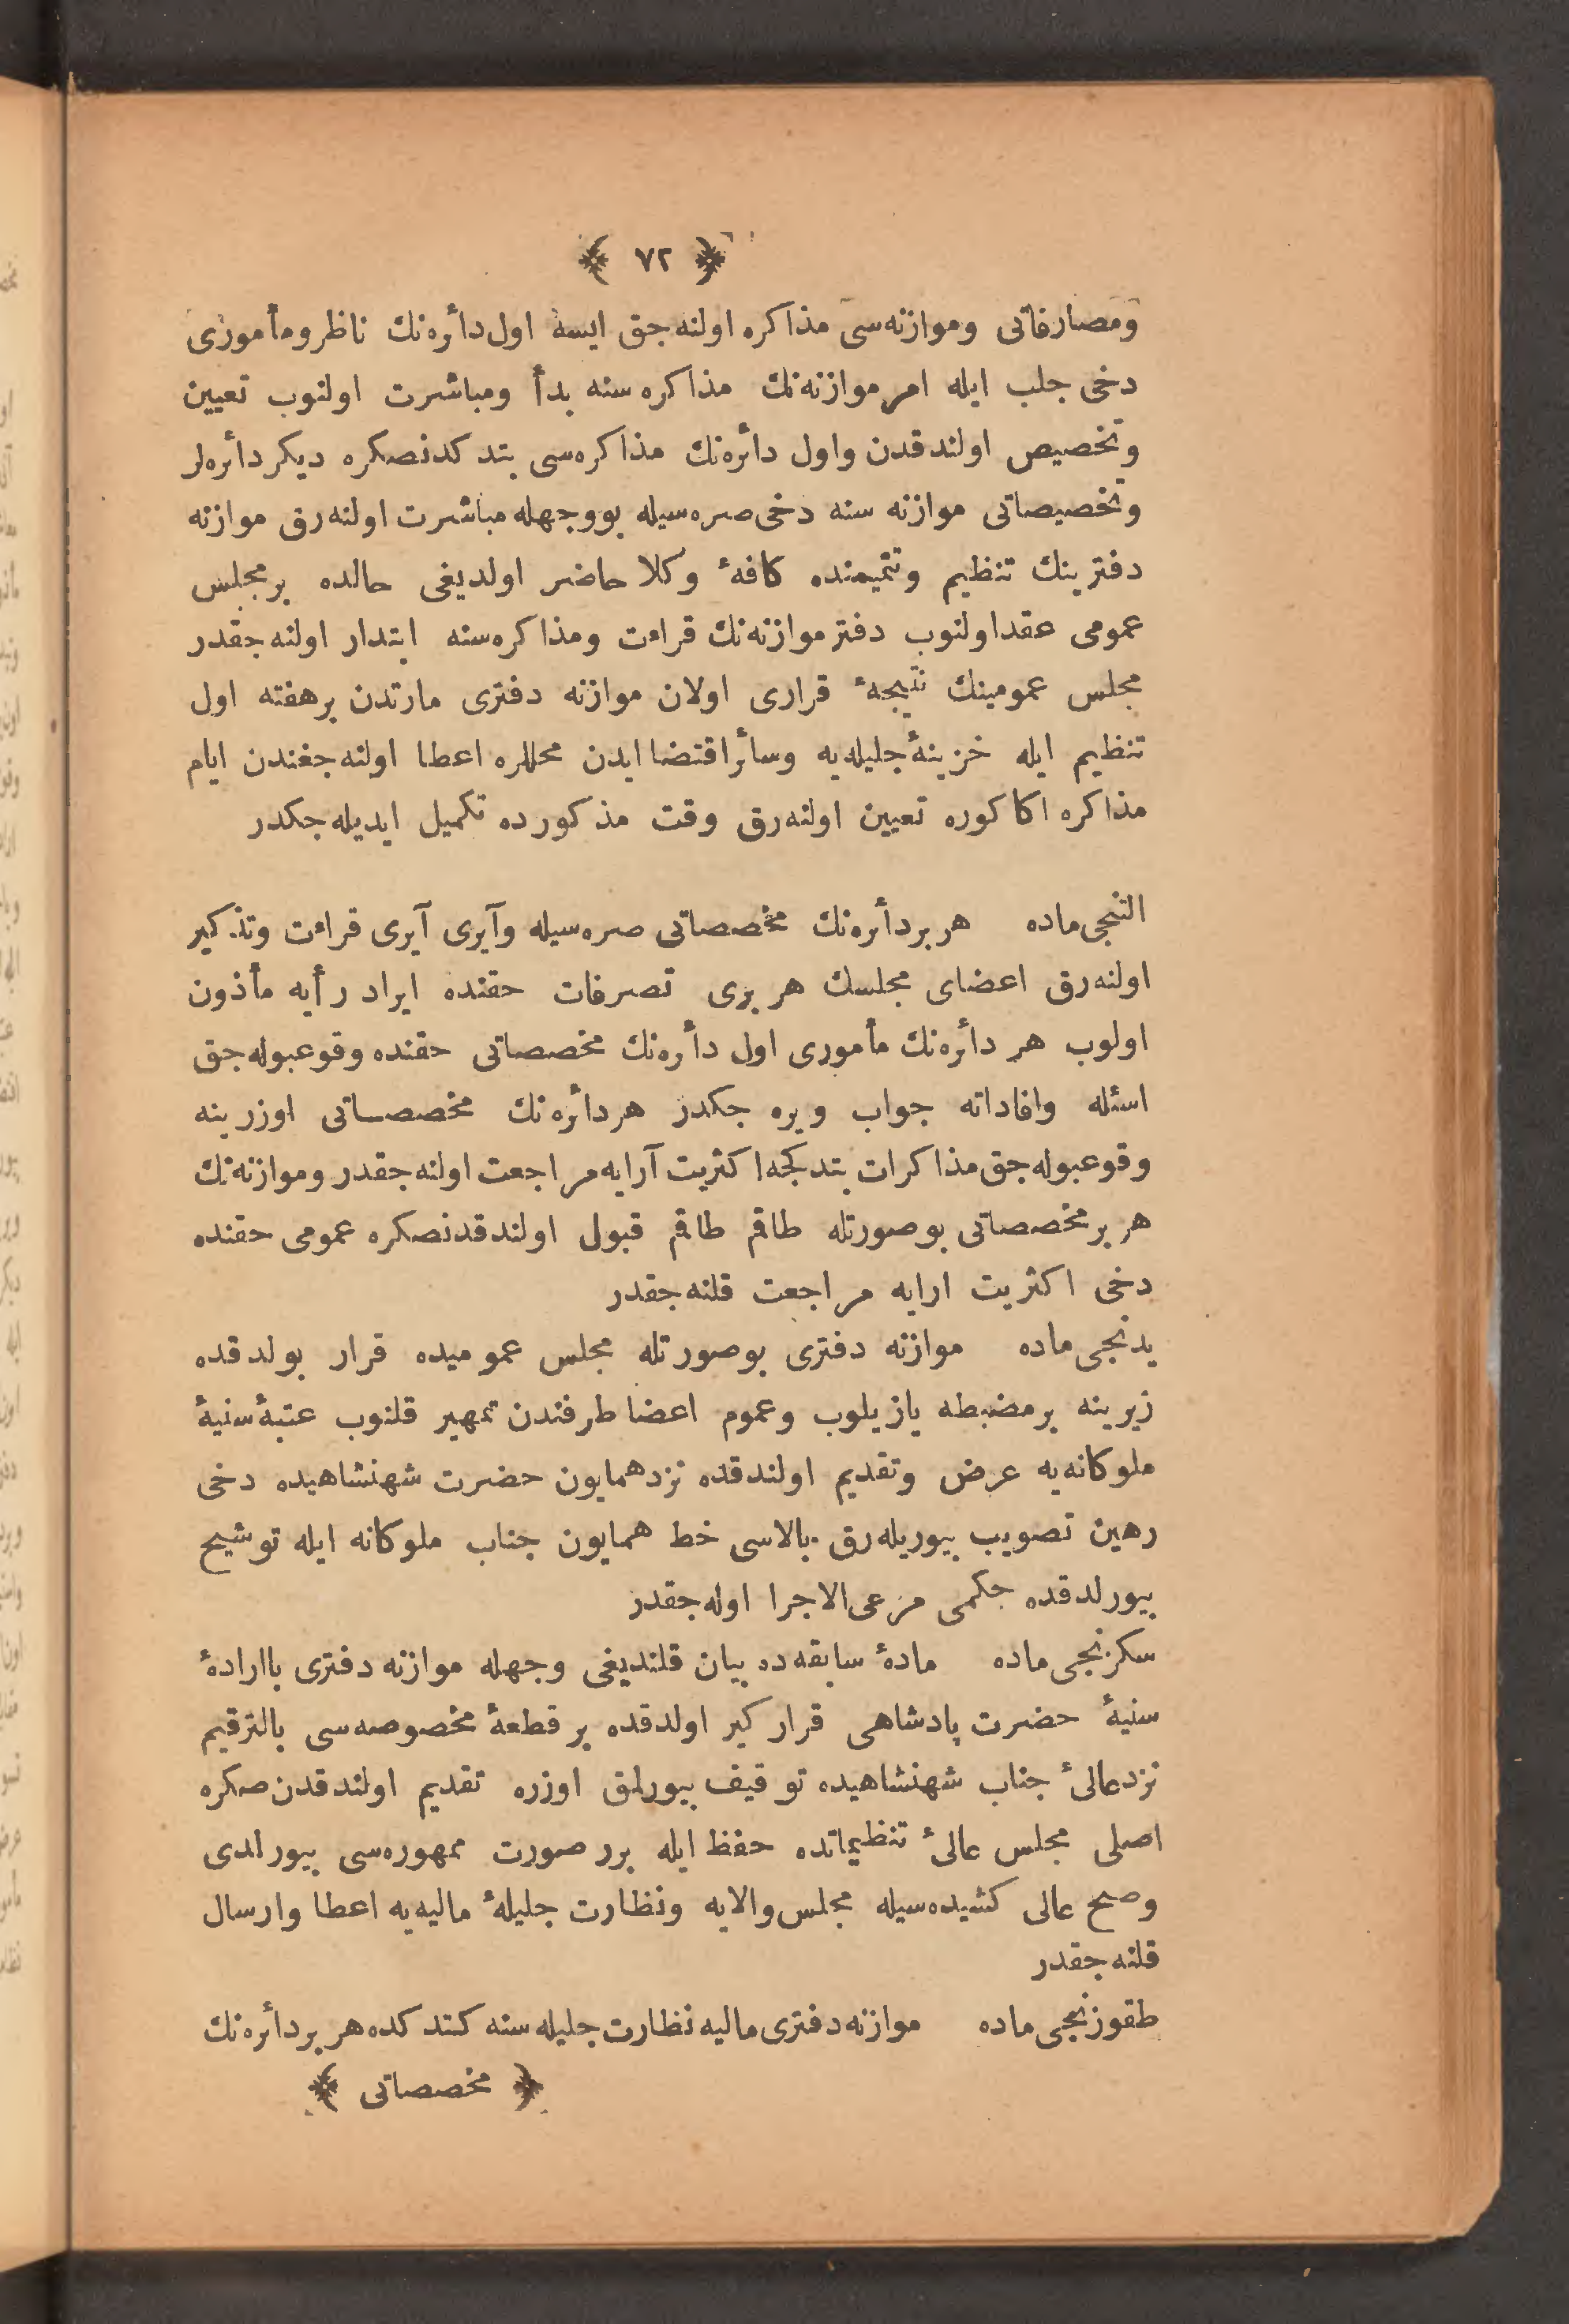 ﴿ ٧٢ ﴾
ومصارفاتی وموازنه‌سی مذاكره اولنه‌جق ایسه اول دائره‌نك ناظر ومأموری
دخی جلب ایله امر موازنه‌نك مذاكره سنه بدأ ومباشرت اولنوب تعیین
وتخصیص اولندقدن واول دائره‌نك مذاكره‌سی بتدكدنصكره دیكر دائره‌لر
وتخصیصاتی موازنه سنه دخی صره‌سیله بووجهله مباشرت اولنه‌رق موازنه
دفترینك تنظیم وتتمیمنده كافهٔ وكلا حاضر اولدیغی حالده بر مجلس
عمومی عقد اولنوب دفتر موازنه‌نك قراءت ومذاكره‌سنه ابتدار اولنه‌جقدر
مجلس عمومینك نتیجهٔ قراری اولان موازنه دفتری مارتدن برهفته اول
تنظیم ایله خزینهٔ جلیله‌یه وسائر اقتضا ایدن محللره اعطا اولنه‌جغندن ایام
مذاكره اكا كوره تعیین اولنه‌رق وقت مذكورده تكمیل ایدیله‌جكدر
التنجی ماده هر بر دائره‌نك مخصصاتی صره‌سیله وآیری آیری قراءت وتذكیر
اولنه‌رق اعضای مجلسك هر بری تصرفات حقنده ایراد رأیه مأذون
اولوب هر دائره‌نك مأموری اول دائره‌نك مخصصاتی حقنده وقوعبوله‌جق
اسئله وافاداته جواب ویره جكدر هر دائره‌نك مخصصاتی اوزرینه
وقوعبوله‌جق مذاكرات بتدكجه اكثریت آرایه مراجعت اولنه‌جقدر وموازنه‌نك
هر بر مخصصاتی بوصورتله طاقم طاقم قبول اولندقدنصكره عمومی حقنده
دخی اكثریت ارایه مراجعت قلنه‌جقدر
یدنجی ماده موازنه دفتری بوصورتله مجلس عمومیده قرار بولدقده
زیرینه بر مضبطه یازیلوب وعموم اعضا طرفندن تمهیر قلنوب عتبهٔ سنیهٔ
ملوكانه‌یه عرض وتقدیم اولندقده نزد همایون حضرت شهنشاهیده دخی
رهین تصویب بیوریله‌رق بالاسی خط همایون جناب ملوكانه ایله توشیح
بیورلدقده حكمی مرعی الاجرا اوله‌جقدر
سكزنجی ماده مادهٔ سابقه‌ده بیان قلندیغی وجهله موازنه دفتری باارادهٔ
سنیهٔ حضرت پادشاهی قراركیر اولدقده بر قطعهٔ مخصوصه‌سی بالترقیم
نزد عالیٔ جناب شهنشاهیده توقیف بیورلمق اوزره تقدیم اولندقدن صكره
اصلی مجلس عالیٔ تنظیماتده حفظ ایله برر صورت ممهوره‌سی بیورلدی
وصح عالی كشیده‌سیله مجلس والایه ونظارت جلیلهٔ مالیه‌یه اعطا وارسال
قلنه‌جقدر
طقوزنجی ماده موازنه دفتری مالیه نظارت جلیله سنه كتدكده هر بر دائره‌نك
﴿ مخصصاتی ﴾